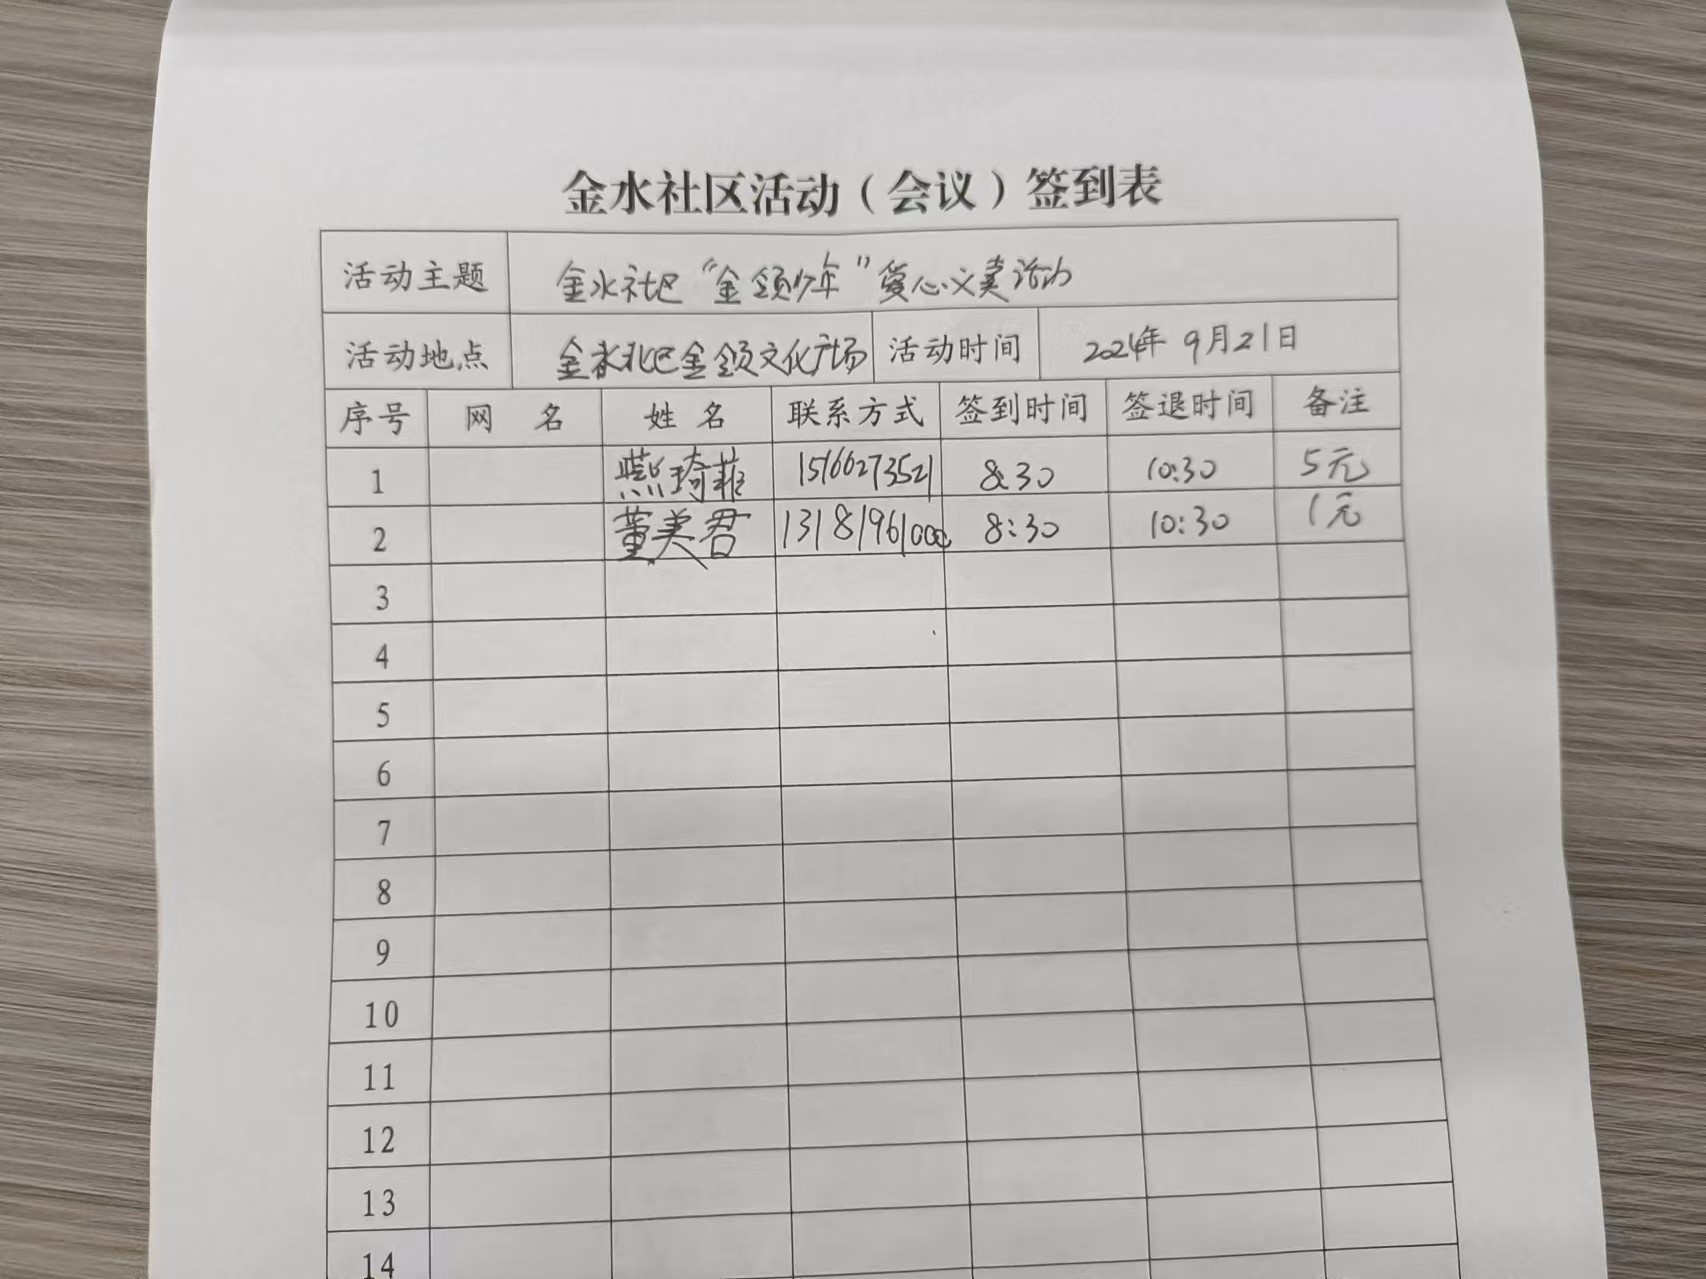 金水社区活动（会议）签到表
活动主题 金水社区“金领少年”爱心义卖活动
活动地点 金水社区金领文化广场 活动时间 2024年9月21日
序号 网 名 姓 名 联系方式 签到时间 签退时间 备注
1 琦菲 15166273521 8:30 10:30 5元
2 董美君 13181961000 8:30 10:30 1元
3
4
5
6
7
8
9
10
11
12
13
14